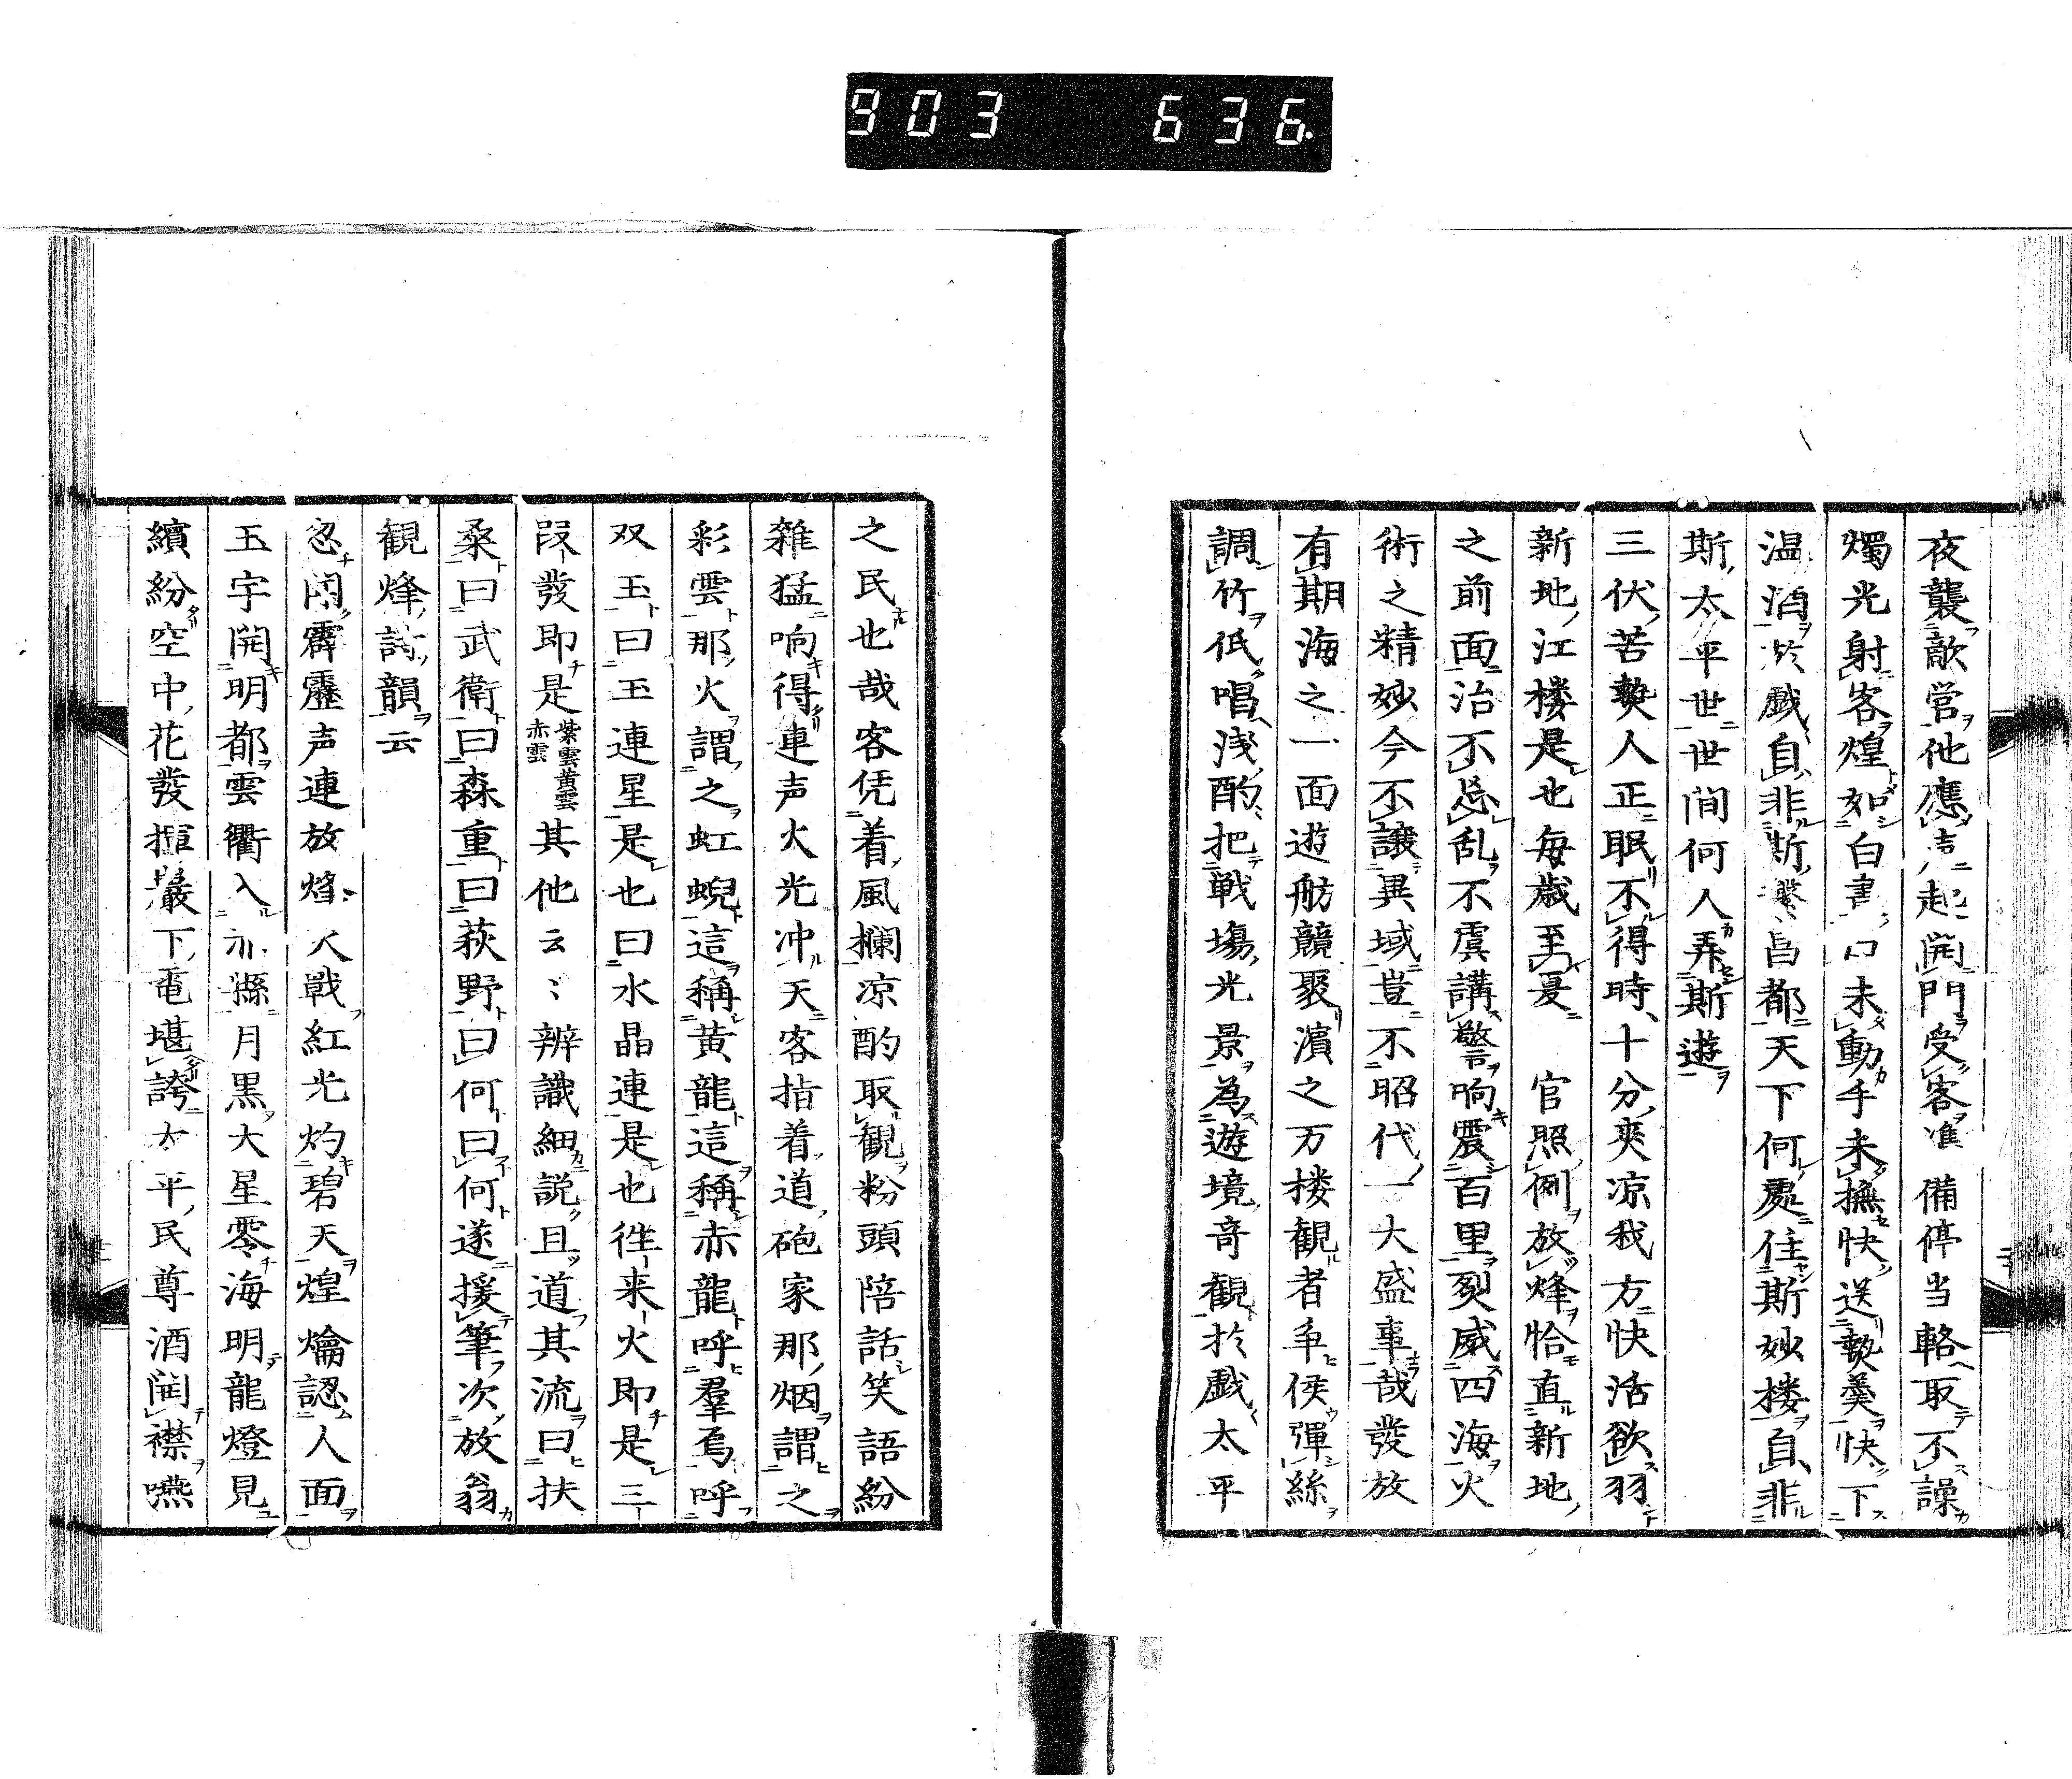 903 636
夜襲敵営他應声起開門受客准備停当輅取不譟
燭光射客煌如白晝口未動手未撫快送熱羹快下
温酒於戯自非斯繁昌都天下何處住斯妙楼自非
斯太平世世間何人弄斯遊
三伏苦熱人正眠不得時十分爽凉我方快活欲羽
新地江楼是也毎歳至夏 官照例放烽恰直新地
之前面治不忘乱不虞講警响震百里烈威四海火
術之精妙今不譲異域豈不昭代一大盛事哉發放
有期海之一面遊舫競聚濱之万楼観者争侯彈絲
調竹低唱浅酌把戦場光景為遊境竒観於戯太平
之民也哉客凭着風欄凉酌取観粉頭陪話笑語紛
雑猛响得連声火光冲天客指着道砲家那烟謂之
彩雲那火謂之虹蜺這稱黄龍這稱赤龍呼羣烏呼
双玉曰玉連星是也曰水晶連是也徃来火即是三
段發即是紫雲黄雲赤雲其他云〻辨識細説且道其流曰扶
桑曰武衛曰森重曰荻野曰何曰何遂援筆次放翁
観烽詩韻云
忽閙霹靂声連放烽火戦紅光灼碧天煌爚認人面
玉宇開明都雲衢入縣月黒大星零海明龍燈見
繽紛空中花發揮巌下電堪誇太平民尊酒開襟嚥